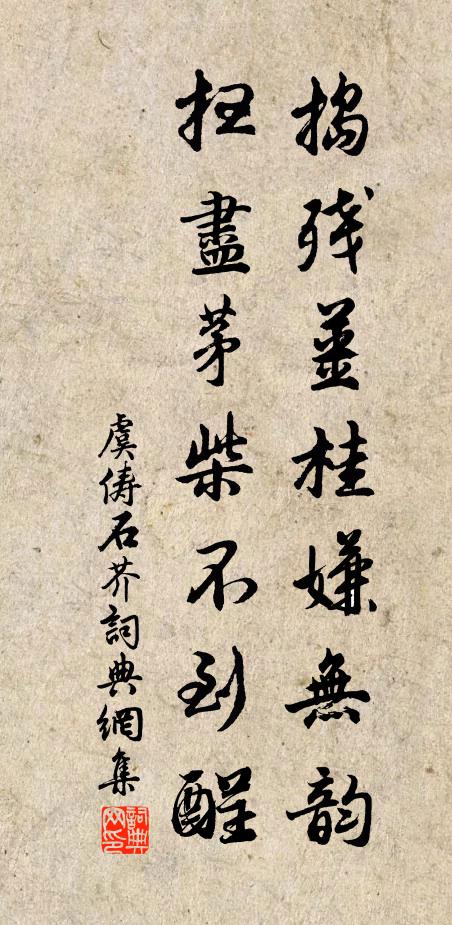 搗残薑桂嫌無韵
盡茅柴不到醒
虞儔石芥詞典網集
詞典網印